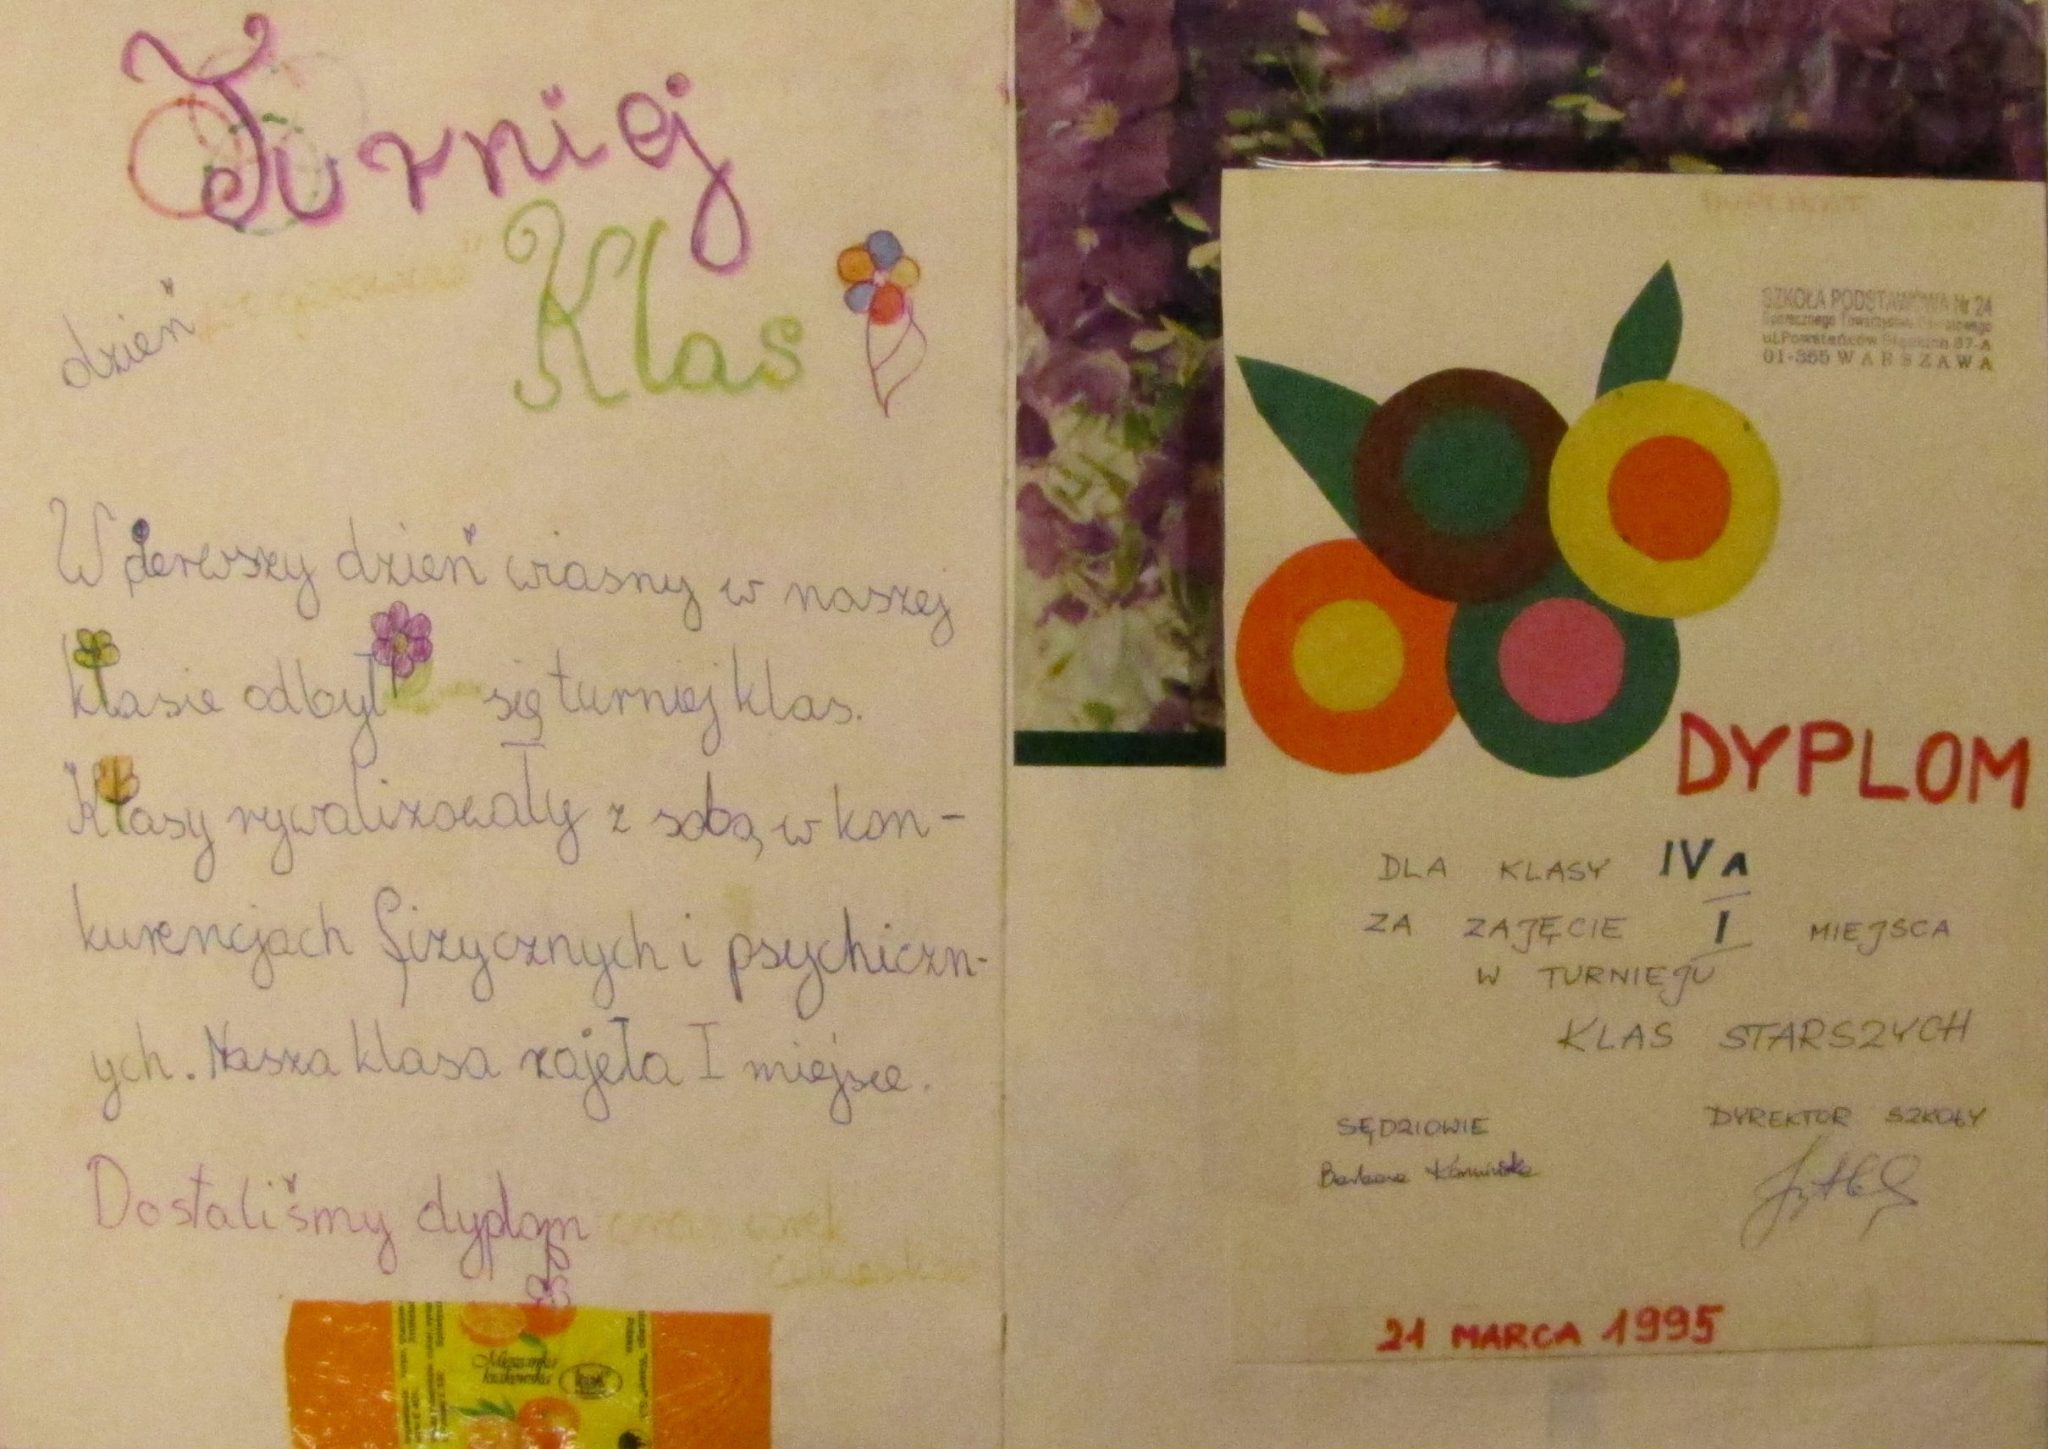 Turniej
Klas
dzień
W pierwszy dzień wiosny w naszej
klasie odbył się turniej klas.
Klasy rywalizowały z sobą w kon-
kurencjach fizycznych i psychiczn-
ych. Nasza klasa zajęła I miejsce.
Dostaliśmy dyplom
Mieszanka
krakowska
SZKOŁA PODSTAWOWA Nr 24
Społecznego Towarzystwa Oświatowego
ul. Powstańców Śląskich 67-A
01-355 WARSZAWA
DYPLOM
DLA KLASY IV A
ZA ZAJĘCIE I MIEJSCA
W TURNIEJU
KLAS STARSZYCH
SĘDZIOWIE
Barbara Kamińska
DYREKTOR SZKOŁY
21 MARCA 1995